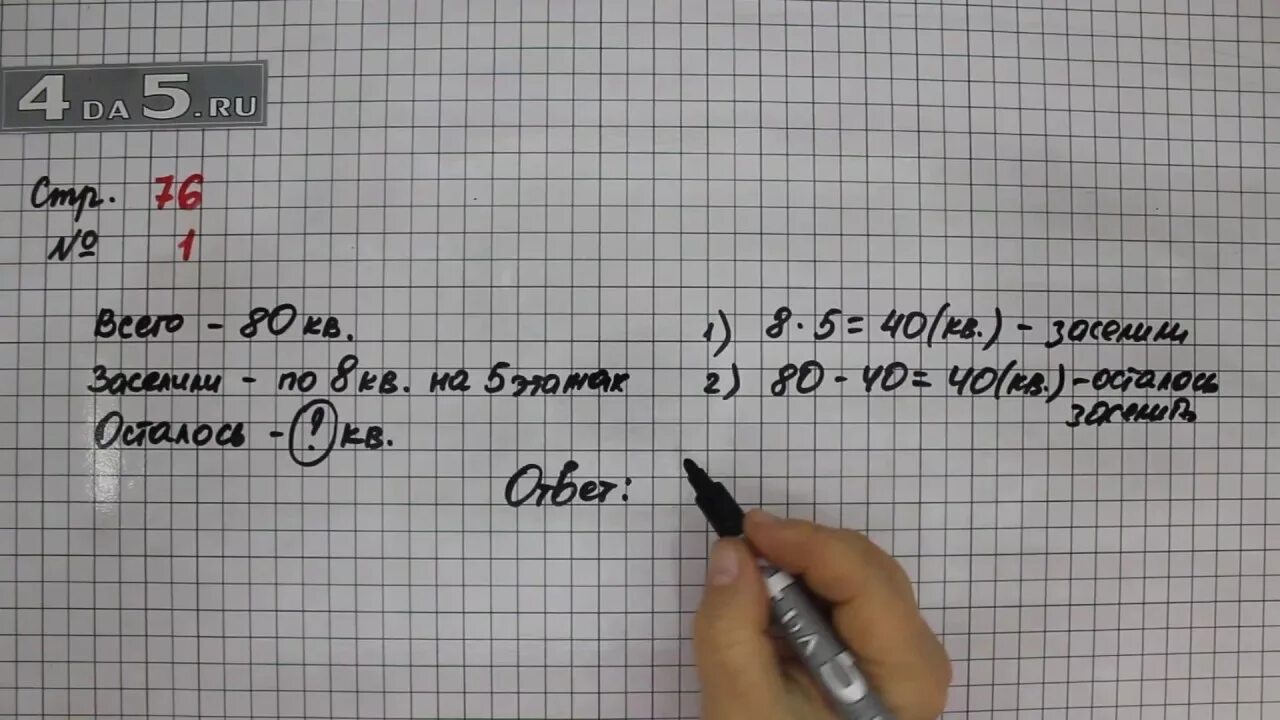 4DA5.RU
Стр. 76
№ 1
Всего - 80 кв.
Заселили - по 8 кв. на 5 этажах
Осталось - ? кв.
1) 8 · 5 = 40 (кв.) - заселили
2) 80 - 40 = 40 (кв.) - осталось
заселить
Ответ: